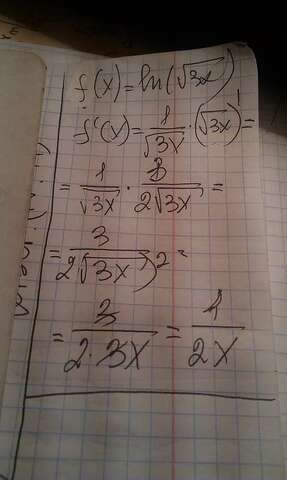 f(x)=ln(√3x)
f'(x)=1/√3x·(√3x)'=
=1/√3x·3/2√3x=
=3/2(√3x)²=
=3/2·3x=1/2x